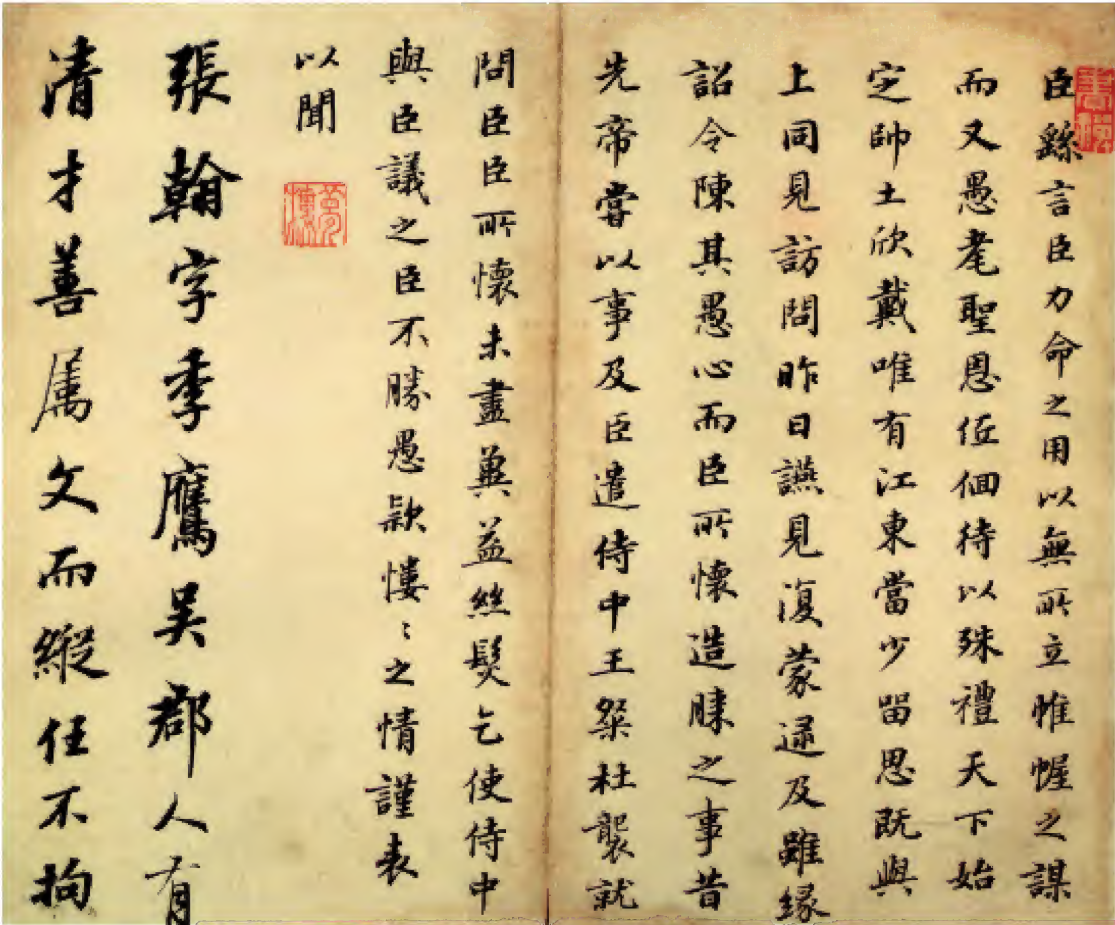 臣繇言臣力命之用以無所立帷幄之謀
而又愚耄聖恩低佪待以殊禮天下始
定帥土欣戴唯有江東當少留思既與
上同見訪問昨日讌見復蒙逮及雖緣
詔令陳其愚心而臣所懷造膝之事昔
先帝嘗以事及臣遣侍中王粲杜襲就
問臣臣所懷未盡冀益絲髮乞使侍中
與臣議之臣不勝愚款慺〻之情謹表
以聞
張翰字季鷹吳郡人有
清才善屬文而縱任不拘